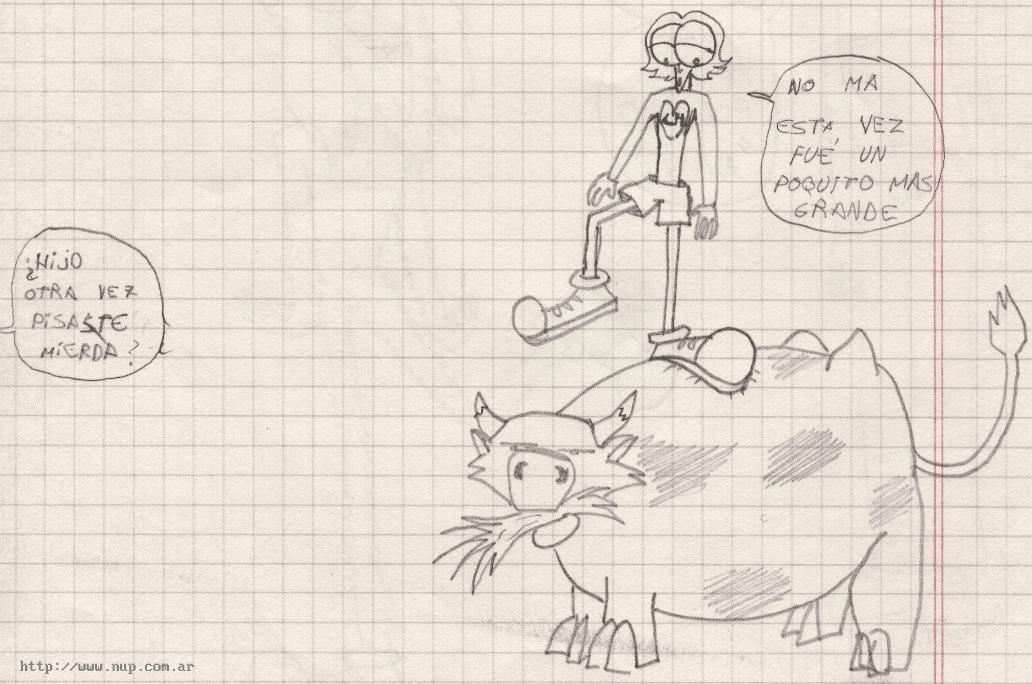 ¿HIJO
OTRA VEZ
PISASTE
MIERDA?
NO MA
ESTA VEZ
FUÉ UN
POQUITO MAS
GRANDE
http://www.nup.com.ar